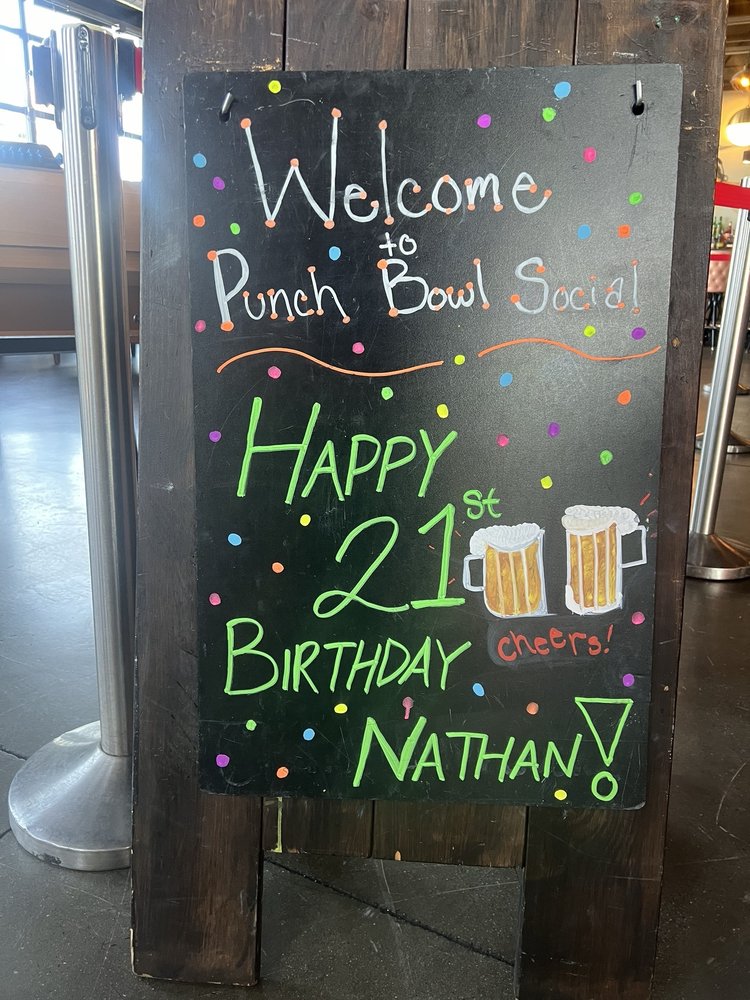 Welcome
to
Punch Bowl Social
HAPPY
21st
cheers!
BIRTHDAY
NATHAN!